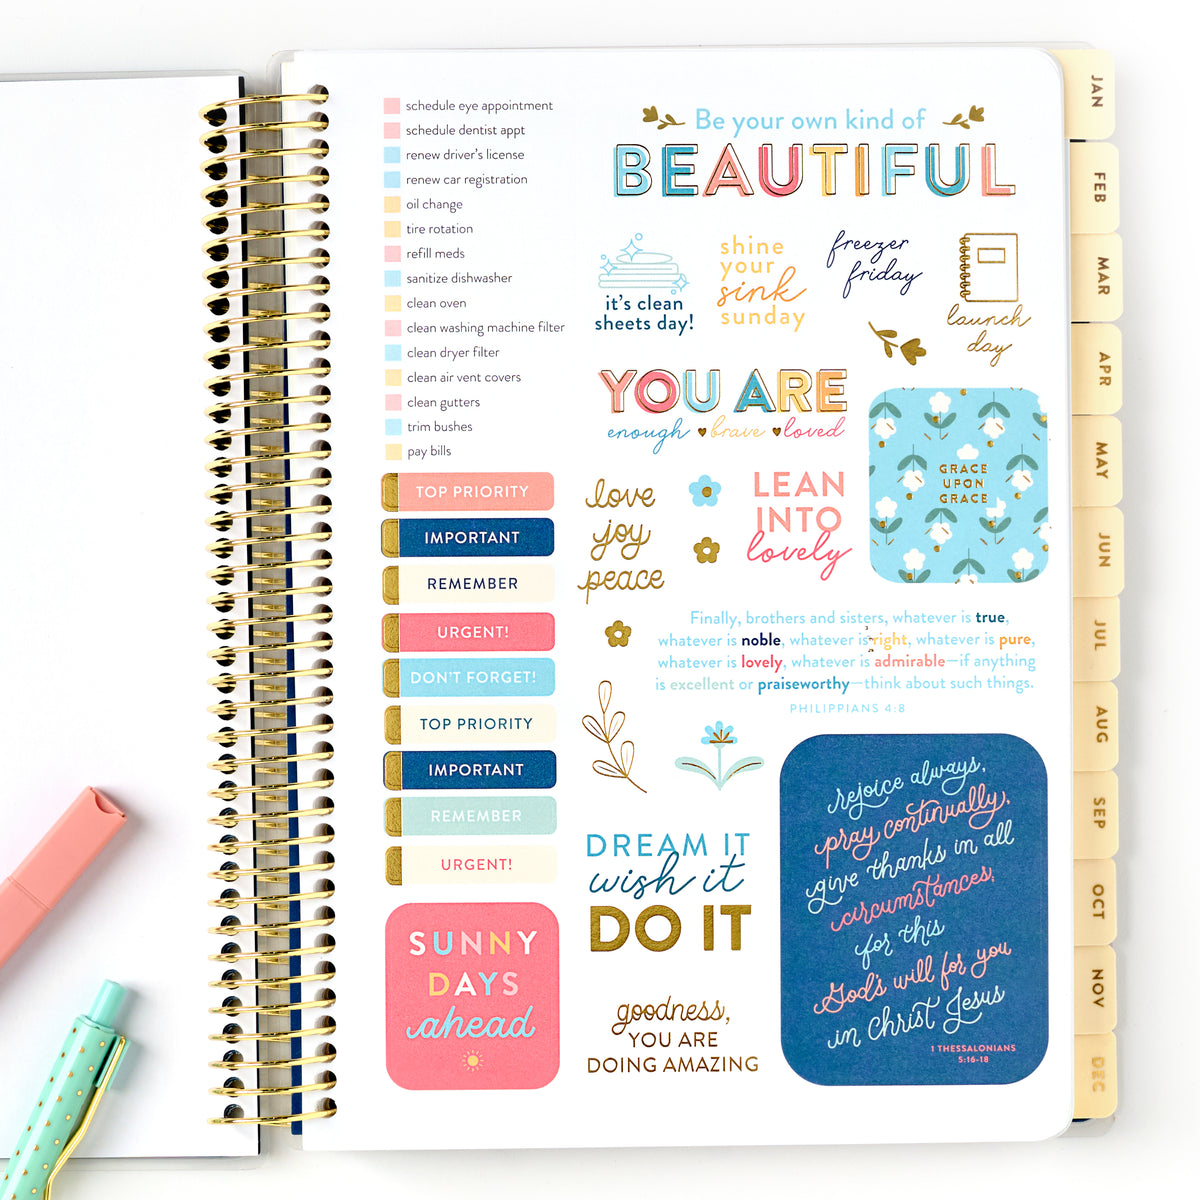 schedule eye appointment
schedule dentist appt
renew driver's license
renew car registration
oil change
tire rotation
refill meds
sanitize dishwasher
clean oven
clean washing machine filter
clean dryer filter
clean air vent covers
clean gutters
trim bushes
pay bills
TOP PRIORITY
IMPORTANT
REMEMBER
URGENT!
DON'T FORGET!
TOP PRIORITY
IMPORTANT
REMEMBER
URGENT!
SUNNY
DAYS
ahead
Be your own kind of
BEAUTIFUL
it's clean
sheets day!
shine
your
sink
sunday
freezer
friday
launch
day
YOU ARE
enough brave loved
love
joy
peace
LEAN
INTO
lovely
GRACE
UPON
GRACE
Finally, brothers and sisters, whatever is true,
whatever is noble, whatever is right, whatever is pure,
whatever is lovely, whatever is admirable—if anything
is excellent or praiseworthy—think about such things.
PHILIPPIANS 4:8
DREAM IT
wish it
DO IT
goodness,
YOU ARE
DOING AMAZING
rejoice always,
pray continually,
give thanks in all
circumstances;
for this
God's will for you
in Christ Jesus
1 THESSALONIANS
5:16-18
JAN
FEB
MAR
APR
MAY
JUN
JUL
AUG
SEP
OCT
NOV
DEC